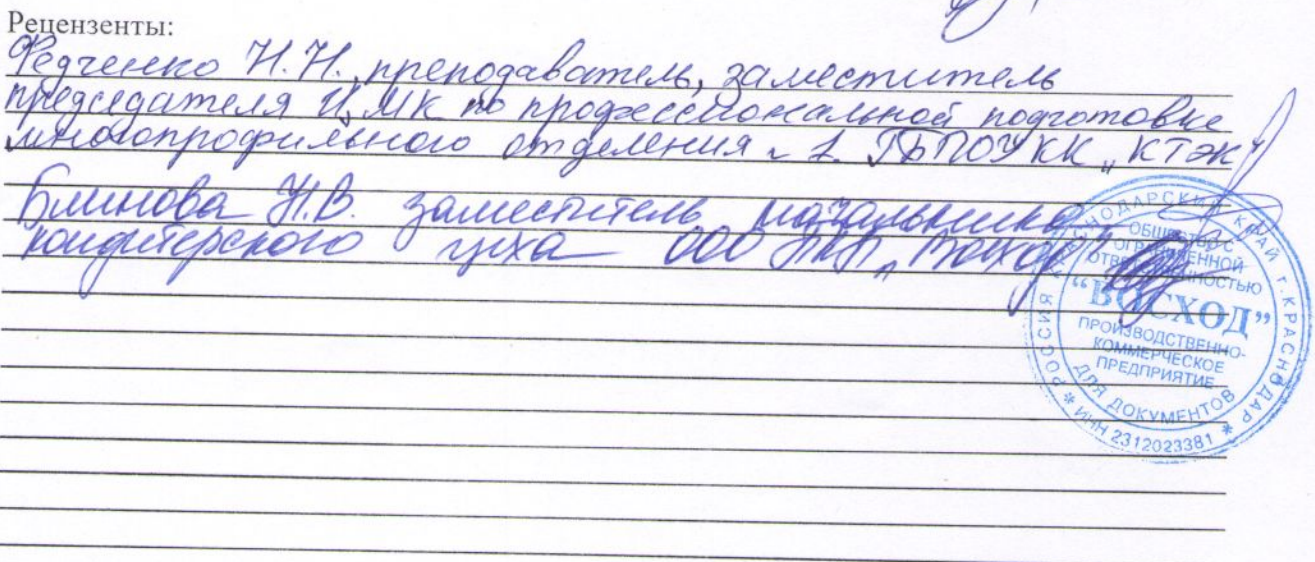 Рецензенты:
Федченко Н.Н., преподаватель, заместитель
председателя ЦМК по профессиональной подготовке
многопрофильного отделения № 1 ГБПОУ КК "КТЭК"
Блинова Н.В. заместитель начальника
кондитерского цеха ООО ПКП "Восход"
КРАСНОДАРСКИЙ КРАЙ г.КРАСНОДАР * ИНН 2312023381 * РОССИЯ
ОБЩЕСТВО С
ОГРАНИЧЕННОЙ
ОТВЕТСТВЕННОСТЬЮ
“ВОСХОД”
ПРОИЗВОДСТВЕННО-
КОММЕРЧЕСКОЕ
ПРЕДПРИЯТИЕ
ДЛЯ ДОКУМЕНТОВ